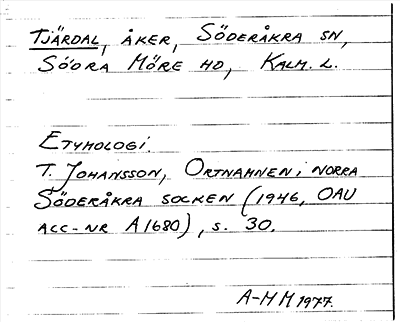 TJÄRDAL, ÅKER, SÖDERÅKRA SN,
SÖDRA MÖRE HD, KALM. L.
ETYMOLOGI.
T. JOHANSSON, ORTNAMNEN I NORRA
SÖDERÅKRA SOCKEN (1946, OAU
ACC-NR A1680), S. 30.
A-MM 1977.